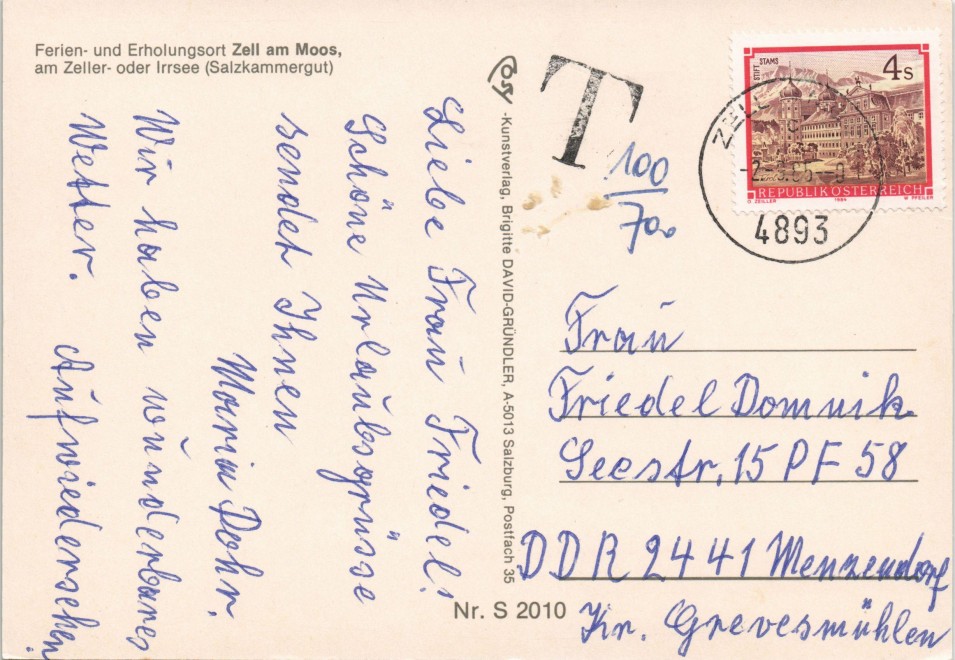 Ferien- und Erholungsort Zell am Moos,
am Zeller- oder Irrsee (Salzkammergut)
Liebe Frau Friedel!
Schöne Urlaubsgrüsse
sendet Ihnen
Maria Dohr.
Wir haben wunderbares
Wetter. Aufwiedersehen!
Cosy-Kunstverlag, Brigitte DAVID-GRÜNDLER, A-5013 Salzburg, Postfach 35
Nr. S 2010
T
100
70
STIFT STAMS
4 S
REPUBLIK ÖSTERREICH
1984
W. PFEILER
ZELL
4893
Frau
Friedel Domnik
Seestr. 15 PF 58
DDR 2441 Menzendorf
Kr. Grevesmühlen